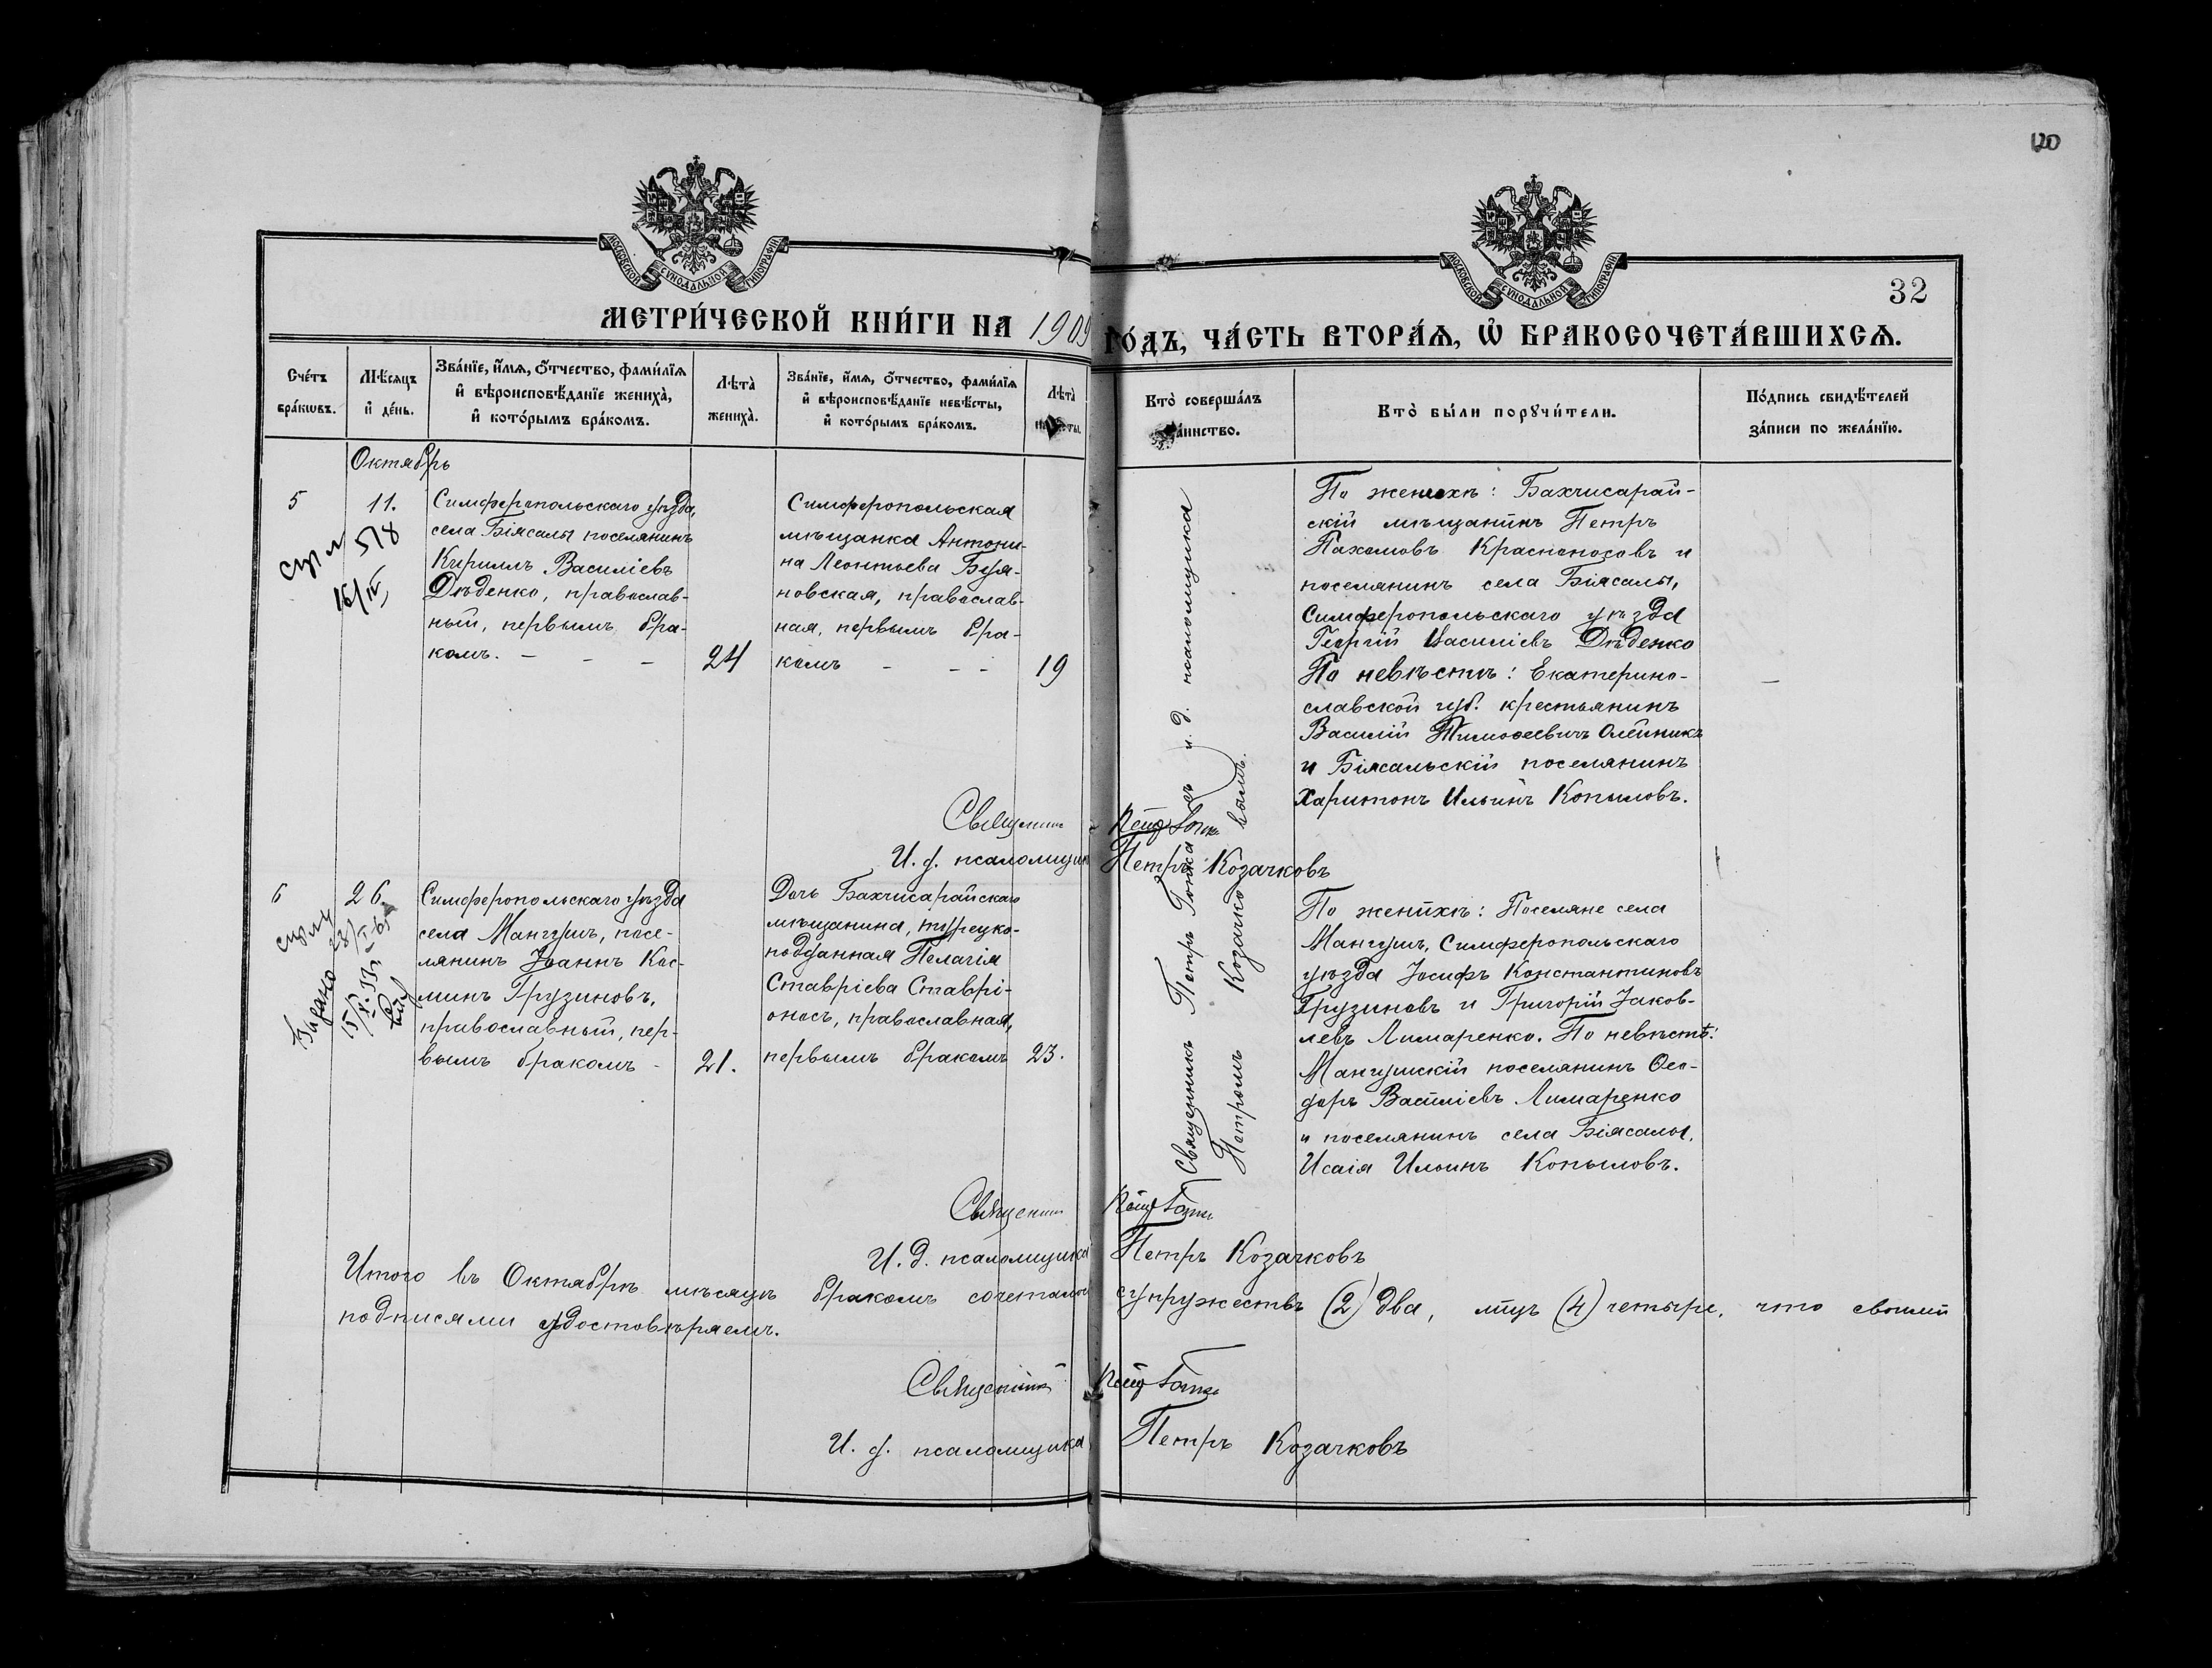 120
МОСКОВСКОЙ СѴНОДАЛЬНОЙ ТИПОГРАФІИ
МОСКОВСКОЙ СѴНОДАЛЬНОЙ ТИПОГРАФІИ
32
МЕТРИ́ЧЕСКОЙ КНИ́ГИ НА 1909 ГО́ДЪ, ЧА́СТЬ ВТОРА́Ѧ, Ѡ҆ БРАКОСОЧЕТА́ВШИХСѦ.
Сче́тъ
бра́кѡвъ.
Мѣ́сѧцъ
и҆ де́нь.
Зва́нїе, и҆́мѧ, ѻ҆́тчество, фами́лїѧ
и҆ вѣроисповѣ́данїе жениха̀,
и҆ кото́рымъ бра́комъ.
Лѣ́та̀
жениха̀.
Зва́нїе, и҆́мѧ, ѻ҆́тчество, фами́лїѧ
и҆ вѣроисповѣ́данїе невѣ́сты,
и҆ кото́рымъ бра́комъ.
Лѣ́та̀
Кто̀ соверша́лъ
та́инство.
Кто̀ бы́ли порꙋчи́тели.
По́дпись свидѣ́телей
за́писи по жела́нїю.
Октябрь
5
11.
578
16/IV
Симферопольскаго уѣзда,
села Біясалы поселянинъ
Кириллъ Василіевъ
Дѣденко, православ-
ный, первымъ бра-
комъ. - - -
24
Симферопольская
мѣщанка Антони-
на Леонтьева Буя-
новская, православ-
ная, первымъ бра-
комъ - - -
19
Священникъ Петръ Гопка съ и. д. псаломщика
Петромъ Козачковымъ.
По женихѣ: Бахчисарай-
скій мѣщанинъ Петръ
Пахомовъ Красноносовъ и
поселянинъ села Біясалы,
Симферопольскаго уѣзда
Георгій Василіевъ Дѣденко
По невѣстѣ: Екатерино-
славской губ. крестьянинъ
Василій Тимоѳеевичъ Олейникъ
и Біясальскій поселянинъ
Харитонъ Ильинъ Копыловъ.
—
Священникъ Петръ Гопка
И. д. псаломщика Петръ Козачковъ
6
26.
Выдано
Симферопольскаго уѣзда
села Мангушъ, посе-
лянинъ Іоаннъ Кос-
минъ Грузиновъ,
православный, пер-
вымъ бракомъ -
21.
Дочь Бахчисарайскаго
мѣщанина, турецко-
подданная Пелагія
Ставріева Ставрі-
оносъ, православная,
первымъ бракомъ
23.
По женихѣ: Поселяне села
Мангушъ, Симферопольскаго
уѣзда Іосифъ Константиновъ
Грузиновъ и Григорій Іаков-
левъ Лимаренко. По невѣстѣ:
Мангушскій поселянинъ Ѳео-
доръ Василіевъ Лимаренко
и поселянинъ села Біясалы,
Исаія Ильинъ Копыловъ.
Священникъ Петръ Гопка
И. д. псаломщика Петръ Козачковъ
Итого въ Октябрѣ мѣсяцѣ бракомъ сочеталось супружествъ (2) два, лицъ (4) четыре, что своими
подписями удостовѣряемъ.
Священникъ Петръ Гопка
И. д. псаломщика Петръ Козачковъ